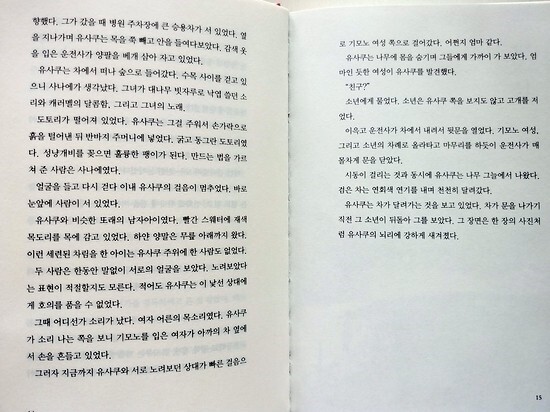 향했다. 그가 갔을 때 병원 주차장에 큰 승용차가 서 있었다. 옆
을 지나가며 유사쿠는 목을 쭉 빼고 안을 들여다보았다. 감색 옷
을 입은 운전사가 양팔을 베개 삼아 자고 있었다.
유사쿠는 차에서 떠나 숲으로 들어갔다. 수목 사이를 걷고 있
으니 사나에가 생각났다. 그녀가 대나무 빗자루로 낙엽 쓸던 소
리와 캐러멜의 달콤함, 그리고 그녀의 노래.
도토리가 떨어져 있었다. 유사쿠는 그걸 주워서 손가락으로
흙을 털어낸 뒤 반바지 주머니에 넣었다. 굵고 동그란 도토리였
다. 성냥개비를 꽂으면 훌륭한 팽이가 된다. 만드는 법을 가르
쳐 준 사람은 사나에였다.
얼굴을 들고 다시 걷다 이내 유사쿠의 걸음이 멈추었다. 바로
눈앞에 사람이 서 있었다.
유사쿠와 비슷한 또래의 남자아이였다. 빨간 스웨터에 재색
목도리를 목에 감고 있었다. 하얀 양말은 무릎 아래까지 왔다.
이런 세련된 차림을 한 아이는 유사쿠 주위에 한 사람도 없었다.
두 사람은 한동안 말없이 서로의 얼굴을 보았다. 노려보았다
는 표현이 적절할지도 모른다. 적어도 유사쿠는 이 낯선 상대에
게 호의를 품을 수 없었다.
그때 어디선가 소리가 났다. 여자 어른의 목소리였다. 유사쿠
가 소리 나는 쪽을 보니 기모노를 입은 여자가 아까의 차 옆에
서 손을 흔들고 있었다.
그러자 지금까지 유사쿠와 서로 노려보던 상대가 빠른 걸음으
로 기모노 여성 쪽으로 걸어갔다. 어쩐지 엄마 같다.
유사쿠는 나무에 몸을 숨기며 그들에게 가까이 가 보았다. 엄
마인 듯한 여성이 유사쿠를 발견했다.
"친구?"
소년에게 물었다. 소년은 유사쿠 쪽을 보지도 않고 고개를 저
었다.
이윽고 운전사가 차에서 내려서 뒷문을 열었다. 기모노 여성,
그리고 소년의 차례로 올라타고 마무리를 하듯이 운전사가 매
몰차게 문을 닫았다.
시동이 걸리는 것과 동시에 유사쿠는 나무 그늘에서 나왔다.
검은 차는 연회색 연기를 내며 천천히 달려갔다.
유사쿠는 차가 달려가는 것을 보고 있었다. 차가 문을 나가기
직전 그 소년이 뒤돌아 그를 보았다. 그 장면은 한 장의 사진처
럼 유사쿠의 뇌리에 강하게 새겨졌다.
15